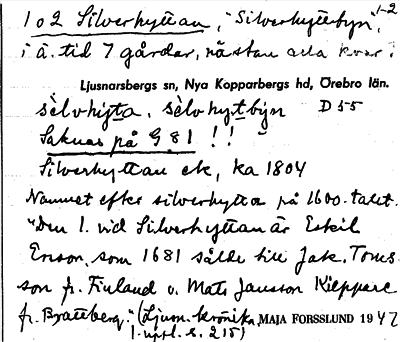 1-2
1 o 2 Silverhyttan, "Silverhyttebyn",
i ä. tid 7 gårdar, nästan alla kvar i
Ljusnarsbergs sn, Nya Kopparbergs hd, Örebro län.
sèlvhỳta, sèlvhytbyn D 55
Saknas på G 81 !!
Silverhyttan ek, ka 1804
Namnet efter silverhytta på 1600-talet.
"Den 1. vid Silverhyttan är Eskil
Erson, som 1681 sålde till Jak. Toms-
son fr. Finland o. Mats Jansson
fr. Brattberg." (Ljusn. krönika,
1. uppl. s. 215)
MAJA FORSSLUND 1942